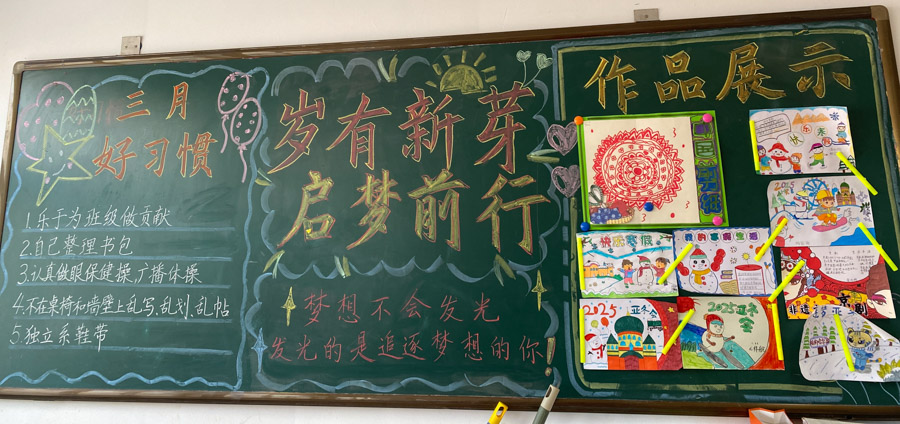 三月
好习惯
1.乐于为班级做贡献
2.自己整理书包
3.认真做眼保健操、广播体操
4.不在桌椅和墙壁上乱写、乱划、乱帖
5.独立系鞋带
岁有新芽
启梦前行
梦想不会发光
发光的是追逐梦想的你!
作品展示
快乐寒假
我的寒假生活
2025
2025亚冬会
2025亚冬